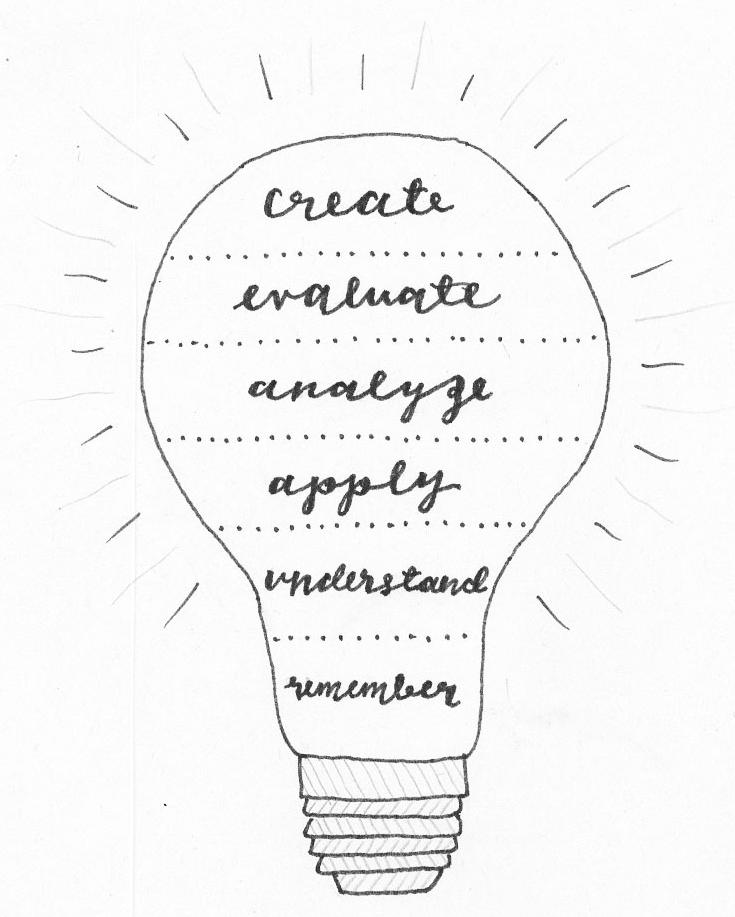 create
evaluate
analyze
apply
understand
remember